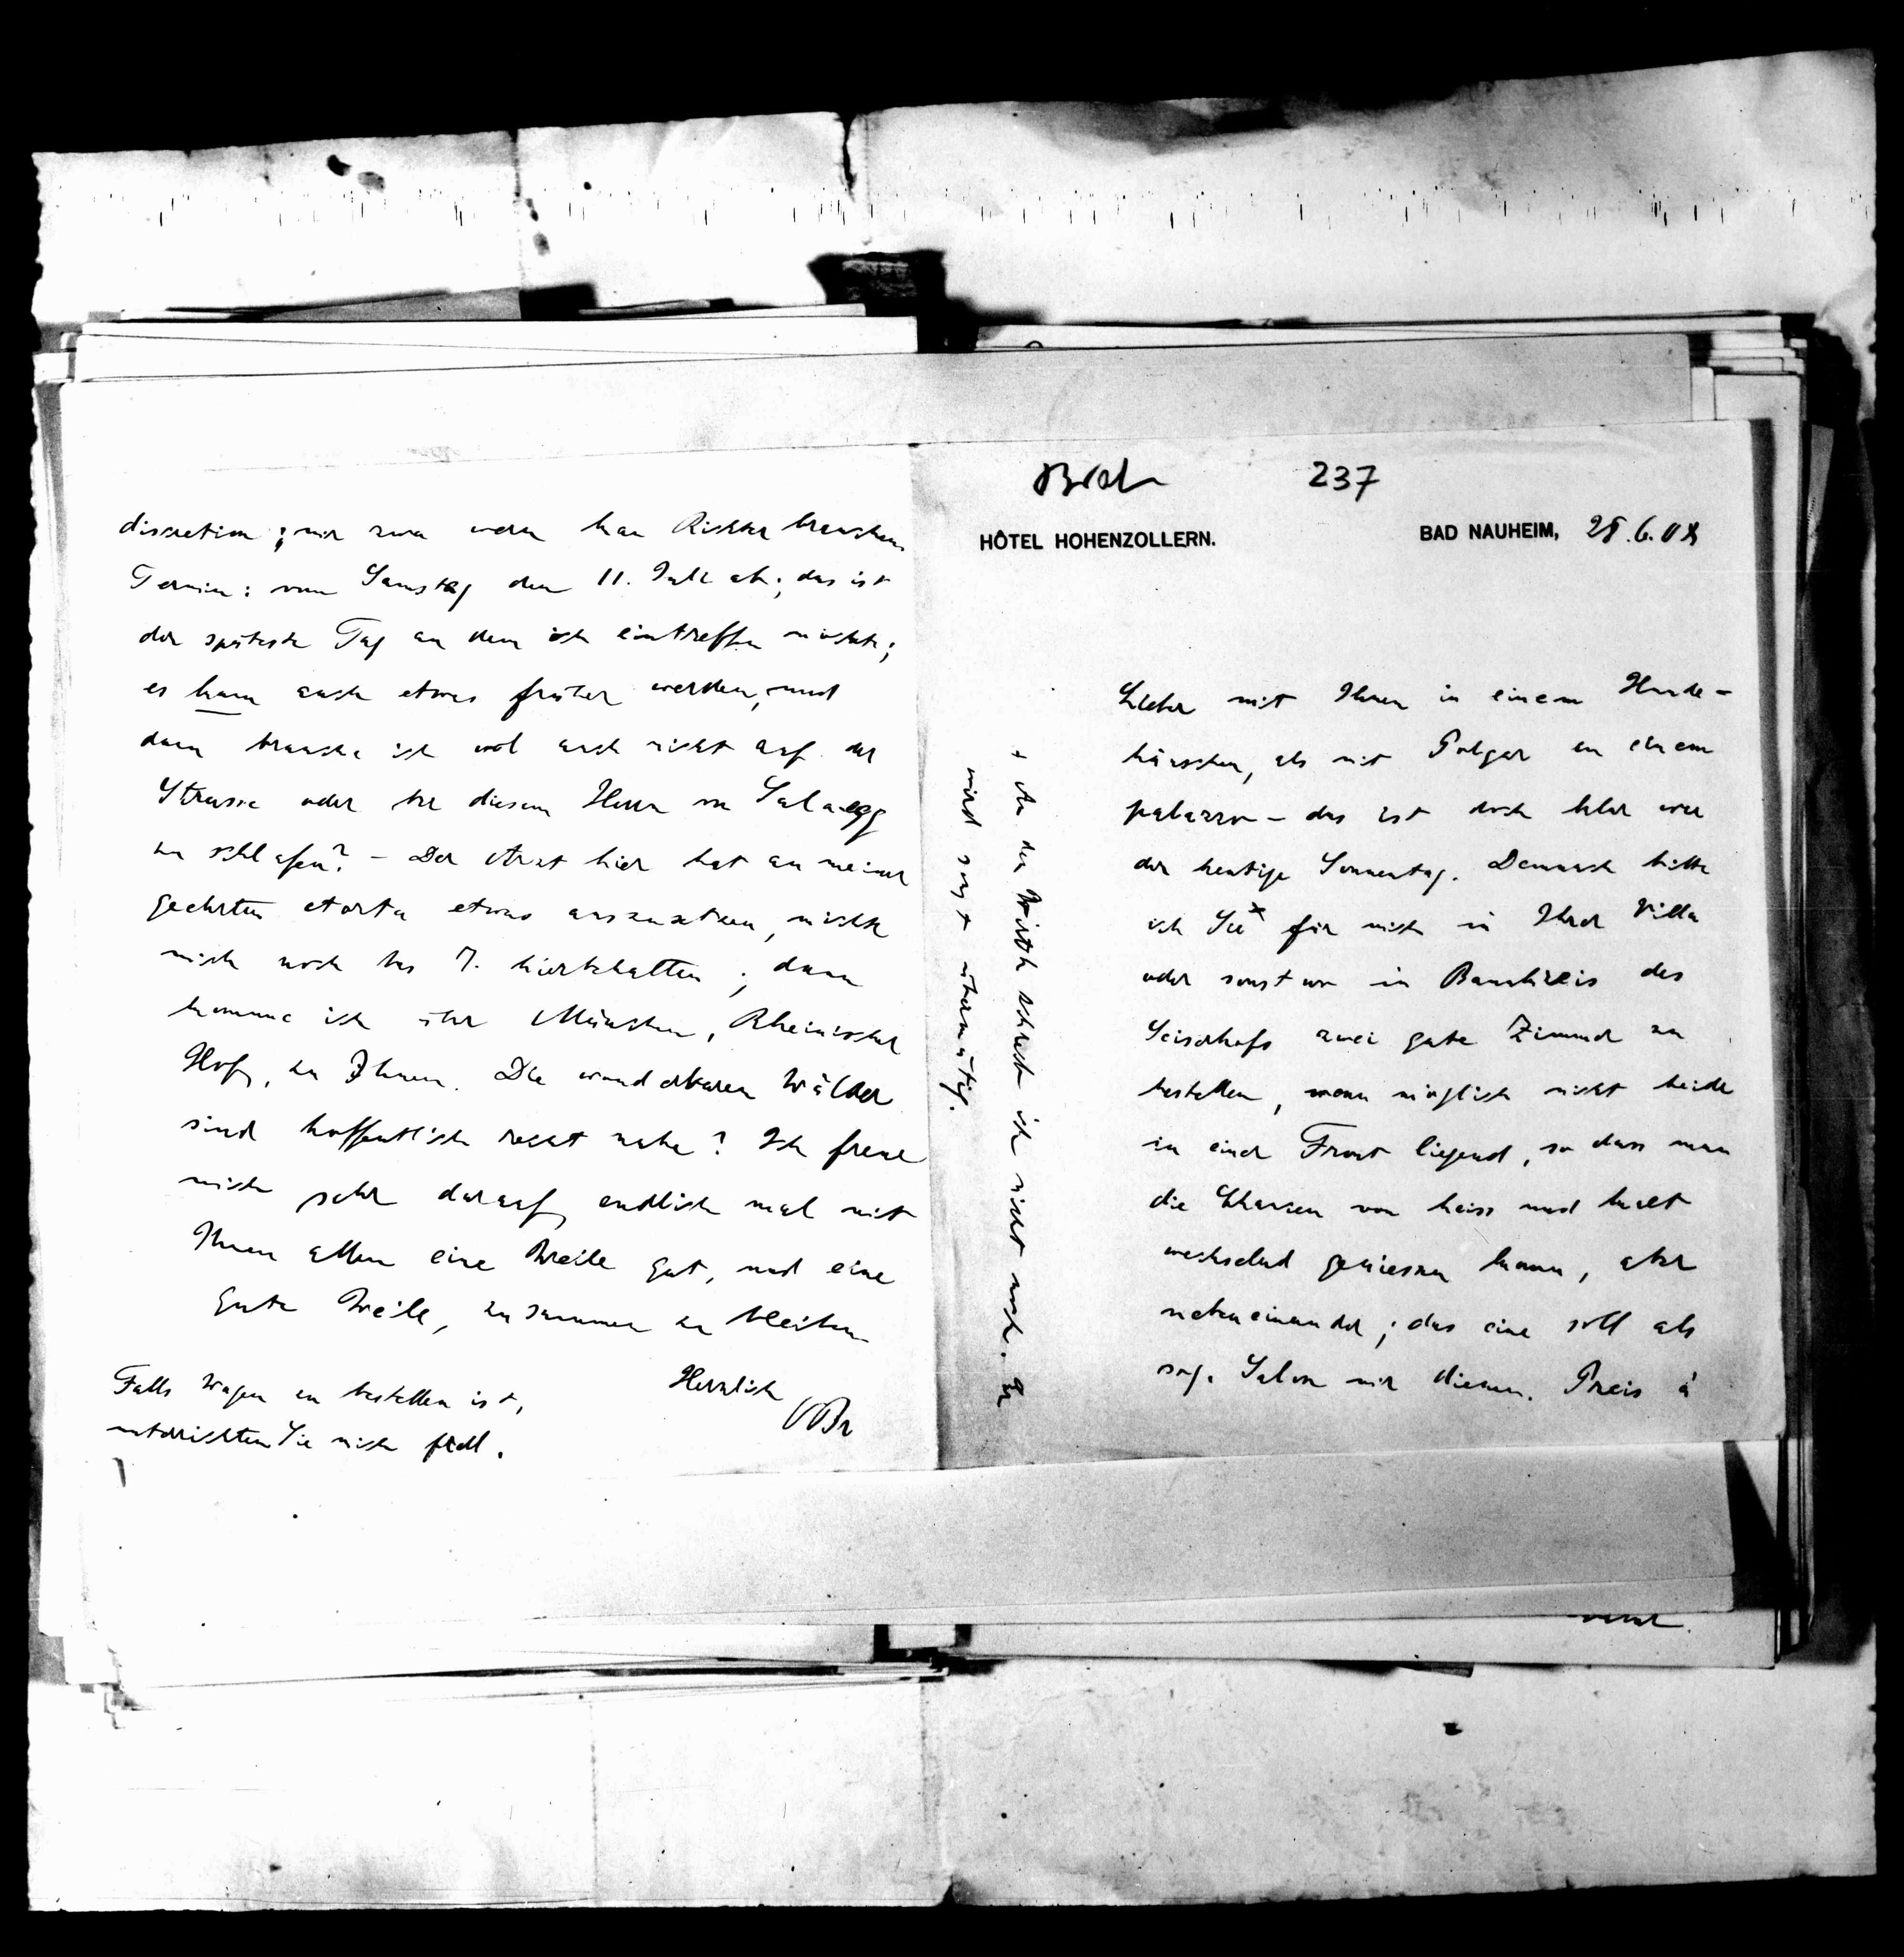 237
HÔTEL HOHENZOLLERN.
BAD NAUHEIM, 28.6.08
Lieber mit Ihnen in einem Hunde-
häuschen, als mit Polgar in einem
palazzo – das ist doch klar wie
der heutige Sonnentag. Demnach bitte
ich Sie x für mich in Ihrer Villa
oder sonst wo in Bannkreis des
Seiserhofs zwei gute Zimmer zu
bestellen, wenn möglich nicht beide
in einer Front liegend, so dass man
die Chancen von heiss und kalt
wechselnd geniessen kann, aber
nebeneinander; das eine soll als
sog. Salon mir dienen. Preis à
+ An den Wirth schreib ich nicht noch. Er
wird sonst übermütig.
discretion; nur zwa wern kan Richter brauchen.
Termin: vom Samstag dem 11. Juli ab; das ist
der späteste Tag an dem ich eintreffen möchte;
es kann auch etwas früher werden, und
dann brauche ich wol auch nicht auf der
Strasse oder bei diesem Herrn von Salaegg
zu schlafen? – Der Arzt hier hat an meiner
geehrten Aorta etwas auszusetzen, möchte
mich noch bis 7. hierbehalten; dann
komme ich über München, Rheinischer
Hof, zu Ihnen. Die wunderbaren Wälder
sind hoffentlich recht nahe? Ich freue
mich sehr darauf, endlich mal mit
Ihnen allen eine Weile gut, und eine
gute Weile, zusammen zu bleiben.
Herzlich
OBr
Falls Wagen zu bestellen ist,
unterrichten Sie mich frdl.